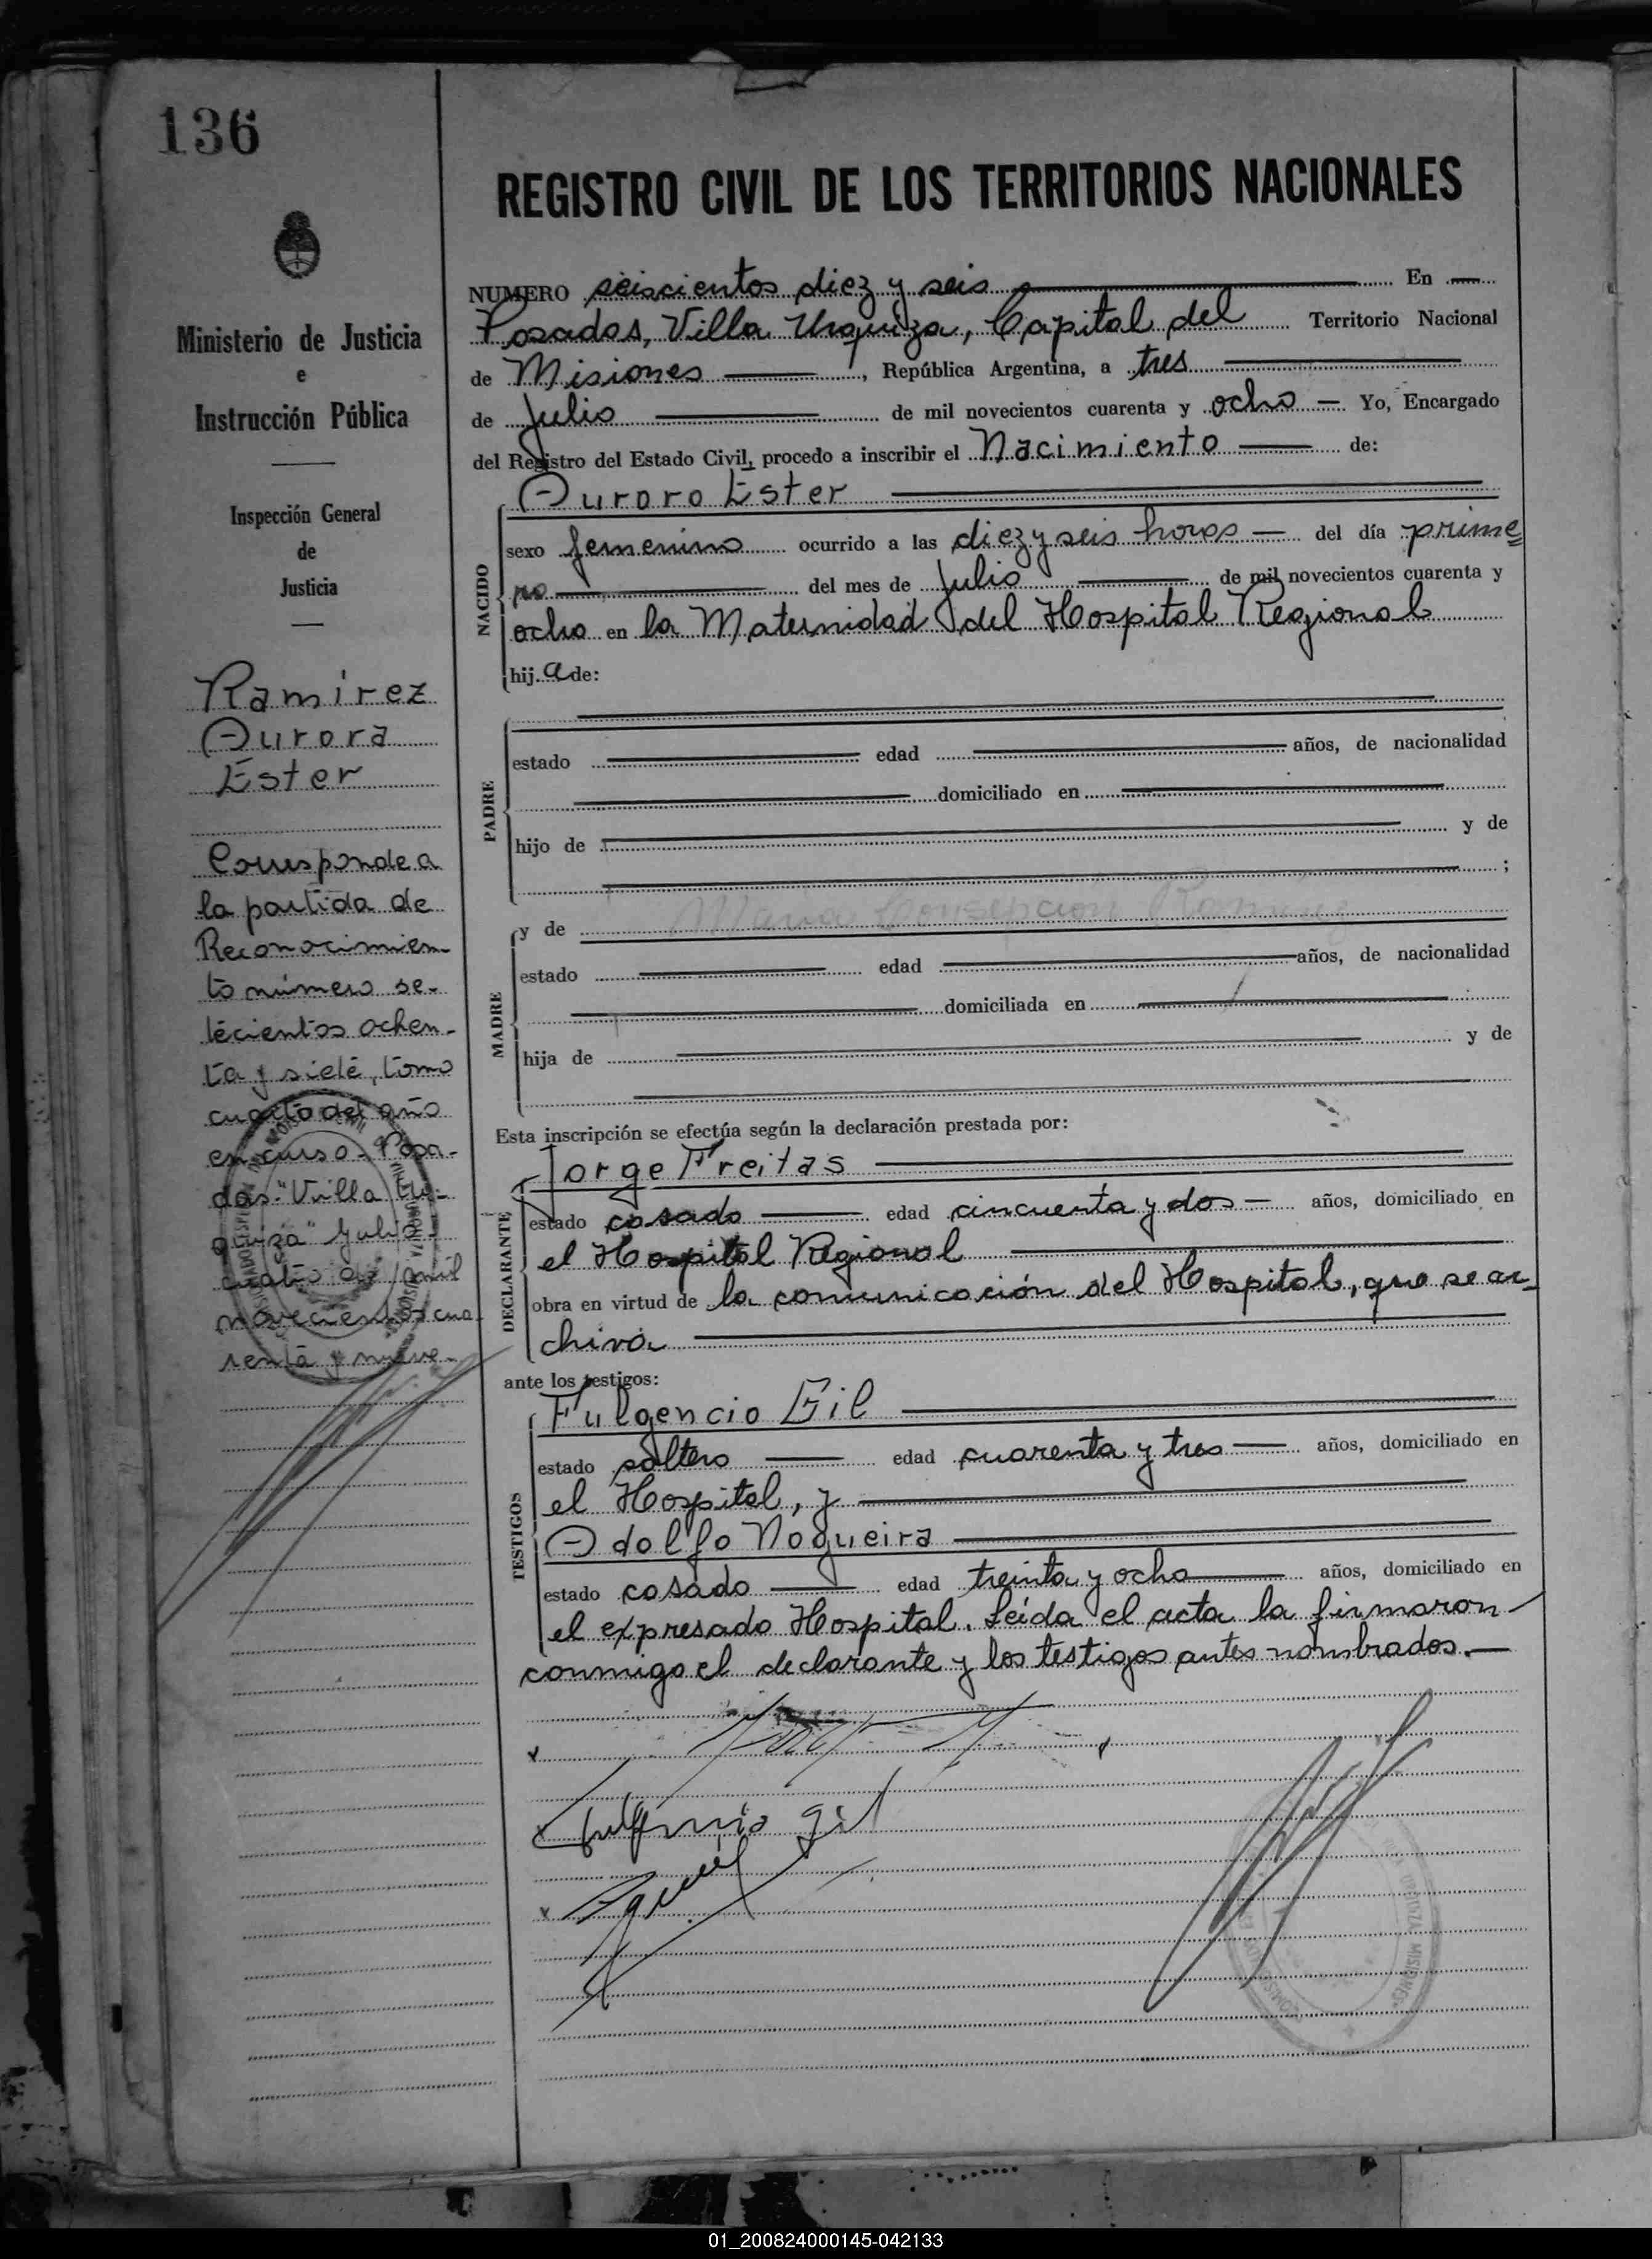 136
REGISTRO CIVIL DE LOS TERRITORIOS NACIONALES
Ministerio de Justicia
e
Instrucción Pública
Inspección General
de
Justicia
Ramírez
Aurora
Ester
Corresponde a
la partida de
Reconocimien-
to número se-
tecientos ochen-
ta y siete, tomo
cuarto del año
en curso. Posa-
das "Villa Ur-
quiza" Julio
cuatro de mil
novecientos cua
renta y nueve.-
NUMERO seiscientos diez y seis En
Posadas, Villa Urquiza, Capital del Territorio Nacional
de Misiones, República Argentina, a tres
de Julio de mil novecientos cuarenta y ocho Yo, Encargado
del Registro del Estado Civil, procedo a inscribir el Nacimiento de:
Auroro Ester
NACIDO
sexo femenino ocurrido a las diez y seis horas del día prime
ro del mes de Julio de mil novecientos cuarenta y
ocho en la Maternidad del Hospital Regional
hij a de:
PADRE
estado edad años, de nacionalidad
domiciliado en
hijo de y de
;
MADRE
y de Maria Ramirez
estado edad años, de nacionalidad
domiciliada en
hija de y de
Esta inscripción se efectúa según la declaración prestada por:
DECLARANTE
Jorge Freitas
estado casado edad cincuenta y dos años, domiciliado en
el Hospital Regional
obra en virtud de la comunicación del Hospital, que se ar-
chiva
ante los testigos:
TESTIGOS
Fulgencio Gil
estado soltero edad cuarenta y tres años, domiciliado en
el Hospital, y
Adolfo Nogueira
estado casado edad treinta y ocho años, domiciliado en
el expresado Hospital. Leída el acta la firmaron
conmigo el declarante y los testigos antes nombrados.
Fulgencio Gil
URQUIZA MISIONES
01_200824000145-042133